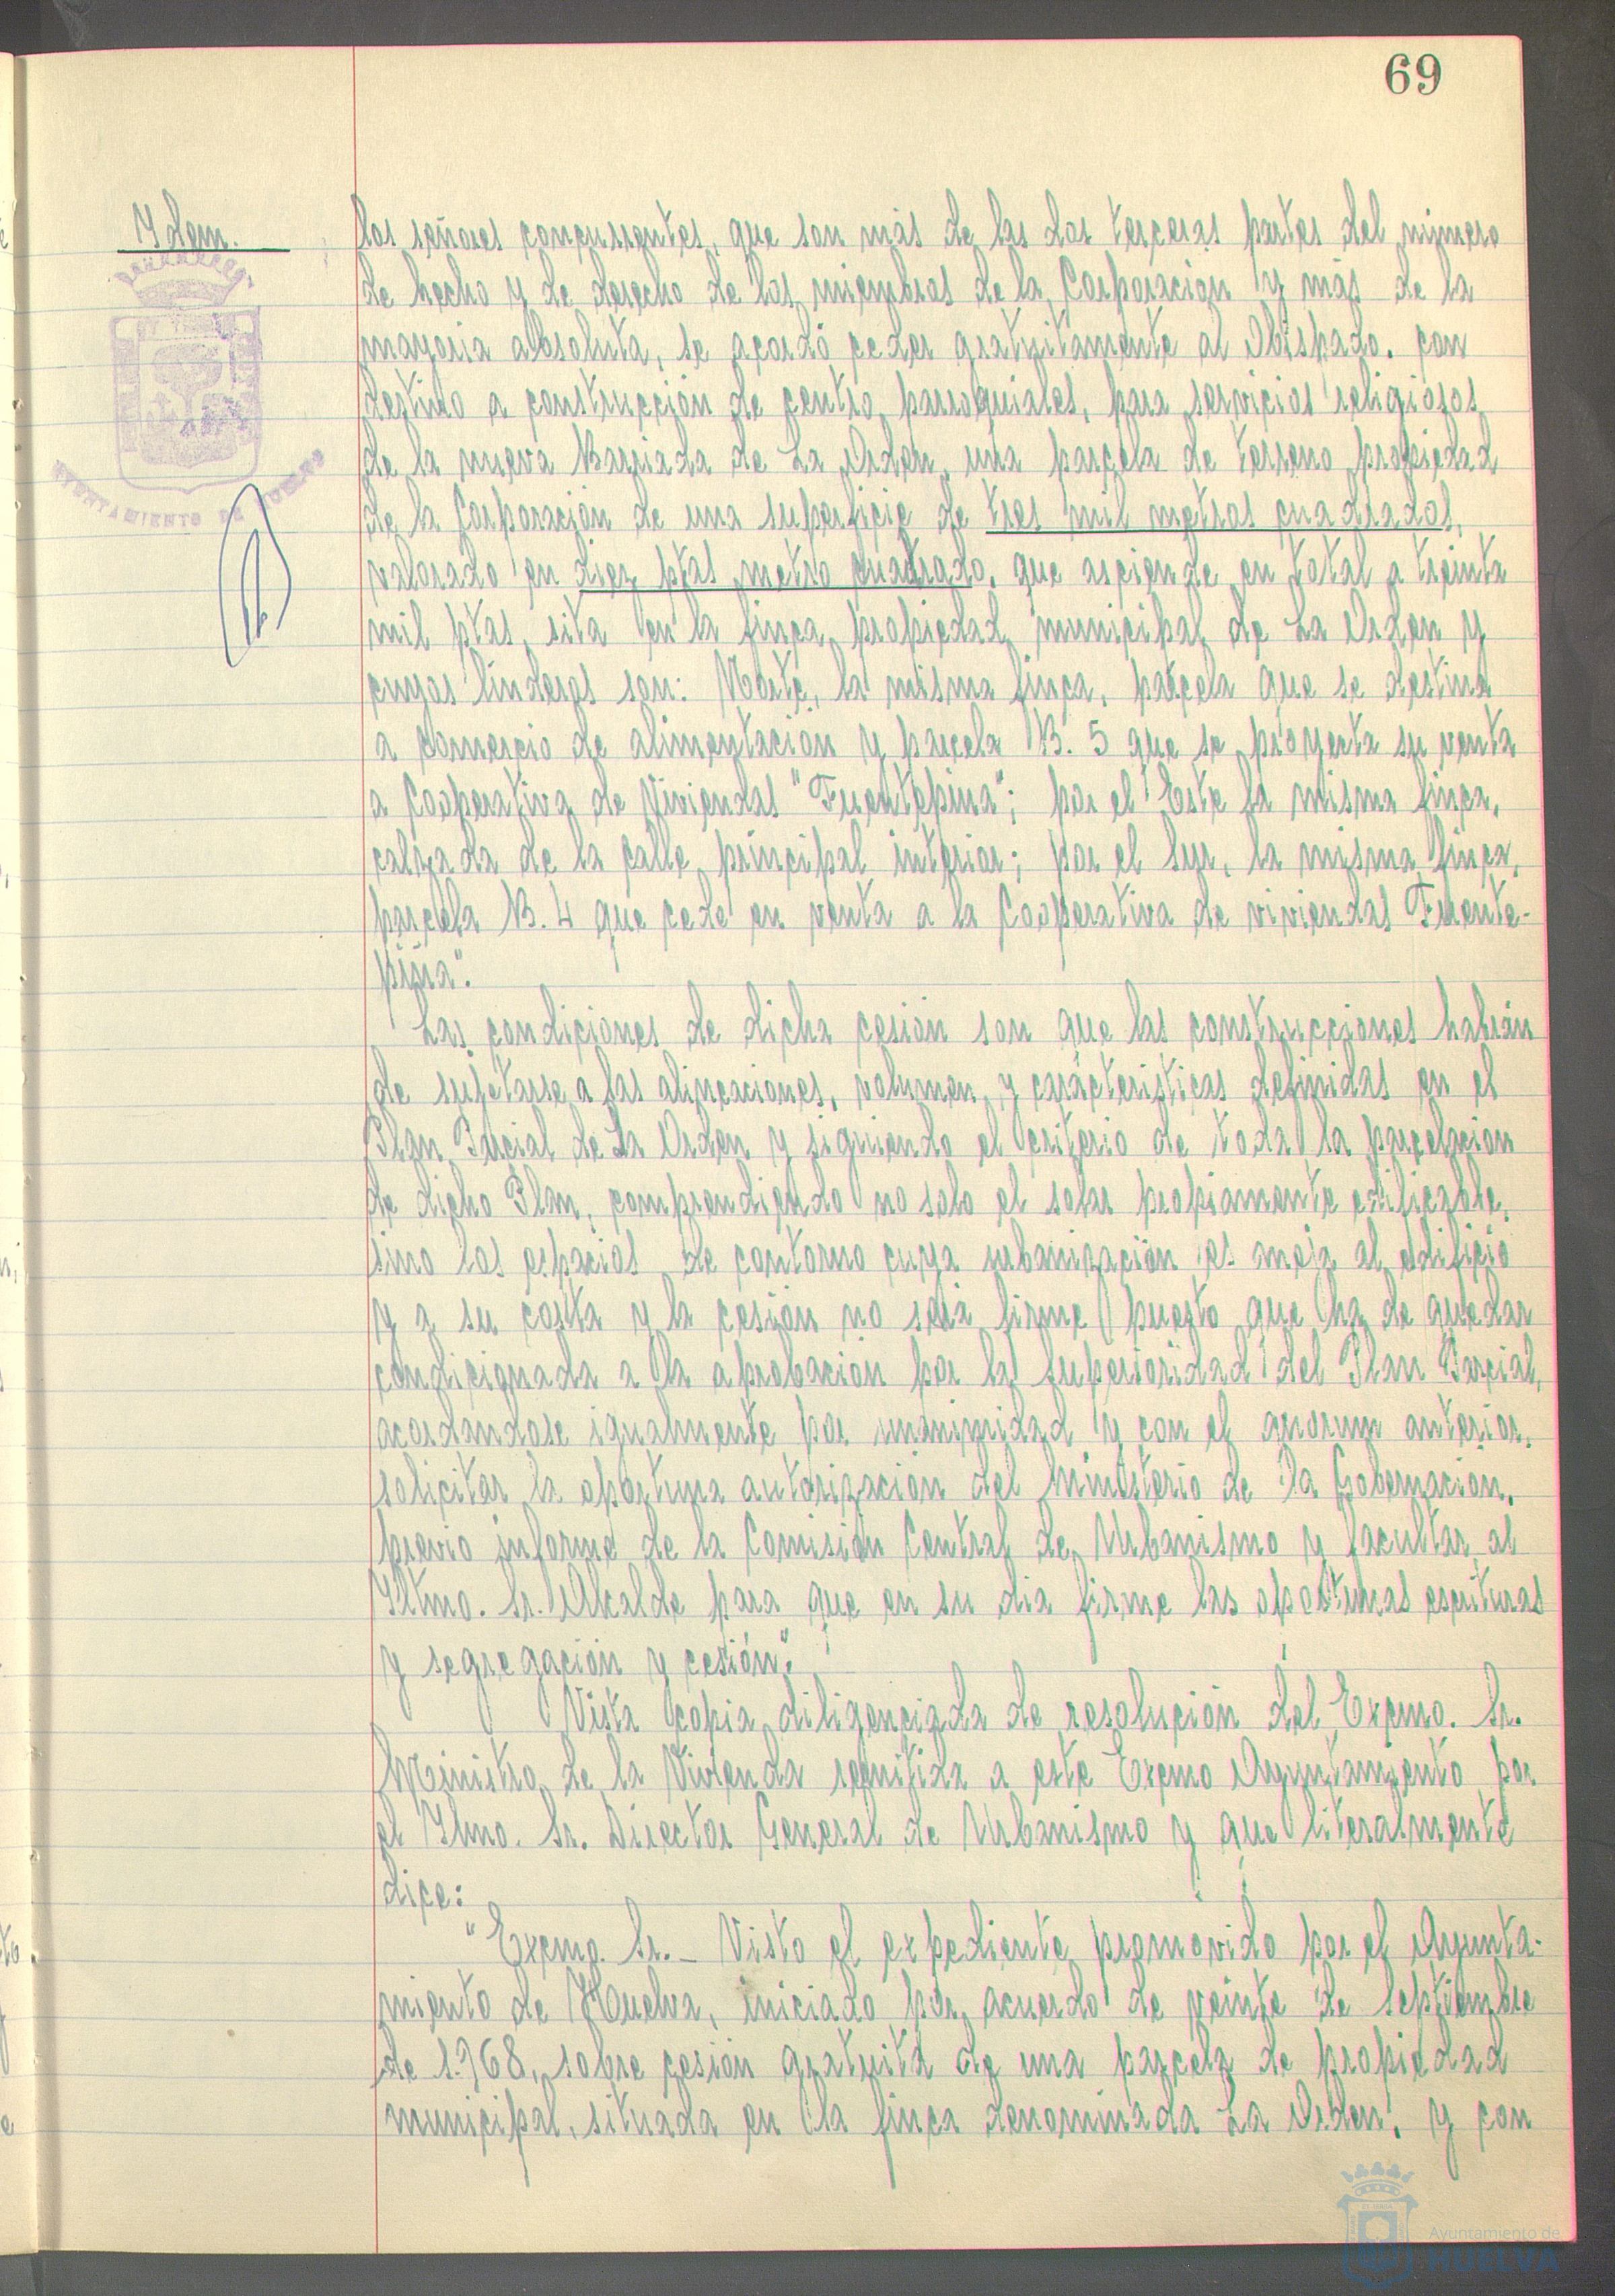 69
Idem.
los señores concurrentes, que son más de las dos terceras partes del número
de hecho y de derecho de los miembros de la Corporación y más de la
mayoría absoluta, se acordó ceder gratuitamente al Obispado. con
destino a construcción de centro parroquiales, para servicios religiosos
de la nueva Barriada de La Orden, una parcela de terreno propiedad
de la Corporación de una superficie de tres mil metros cuadrados,
valorado en diez ptas metro cuadrado, que asciende en total a treinta
mil ptas, sita en la finca propiedad municipal de La Orden y
cuyos linderos son: Norte, la misma finca, parcela que se destina
a comercio de alimentación y parcela B. 5 que se proyecta su venta
a Cooperativa de Viviendas "Fuentepiña"; por el Este la misma finca,
calzada de la calle principal interior; por el Sur, la misma finca,
parcela B. 4 que cede en venta a la Cooperativa de viviendas Fuente-
piña".
Las condiciones de dicha cesión son que las construcciones habrán
de sujetarse a las alineaciones, volumen, y características definidas en el
Plan Parcial de La Orden y siguiendo el criterio de toda la parcelación
de dicho Plan, comprendiendo no solo el solar propiamente edificable,
sino los espacios de contorno cuya urbanización es aneja al edificio
y a su costa y la cesión no será firme puesto que ha de quedar
condicionada a la aprobación por la Superioridad del Plan Parcial,
acordándose igualmente por unanimidad y con el quorum anterior,
solicitar la oportuna autorización del Ministerio de la Gobernación,
previo informe de la Comisión Central de Urbanismo y facultar al
Iltmo. Sr. Alcalde para que en su día firme las oportunas escrituras
y segregación y cesión".
Vista copia diligenciada de resolución del Excmo. Sr.
Ministro de la Vivienda remitida a este Excmo Ayuntamiento por
el Ilmo. Sr. Director General de Urbanismo y que literalmente
dice:
"Excmo. Sr. - Visto el expediente promovido por el Ayunta-
miento de Huelva, iniciado por acuerdo de veinte de Septiembre
de 1.968, sobre cesión gratuita de una parcela de propiedad
municipal, situada en la finca denominada La Orden, y con
AYUNTAMIENTO DE HUELVA
Ayuntamiento de
HUELVA